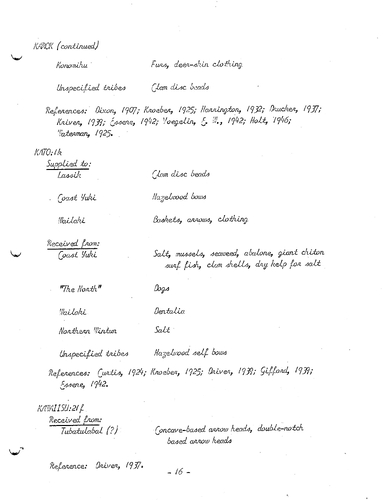 KAROK (continued)
Konomihu Furs, deer-skin clothing
Unspecified tribes Clam disc beads
References: Dixon, 1907; Kroeber, 1925; Harrington, 1932; Drucker, 1937;
Kriver, 1939; Essene, 1942; Voegelin, E. W., 1942; Holt, 1946;
Waterman, 1925.
KATO:1h
Supplied to:
Lassik Clam disc beads
Coast Yuki Hazelwood bows
Wailaki Baskets, arrows, clothing
Received from:
Coast Yuki Salt, mussels, seaweed, abalone, giant chiton
surf fish, clam shells, dry kelp for salt
"The North" Dogs
Wailaki Dentalia
Northern Wintun Salt
Unspecified tribes Hazelwood self bows
References: Curtis, 1924; Kroeber, 1925; Driver, 1939; Gifford, 1939;
Essene, 1942.
KAWAIISU:21f
Received from:
Tubatulabal (?) Concave-based arrow heads, double-notch
based arrow heads
Reference: Driver, 1937.
- 16 -